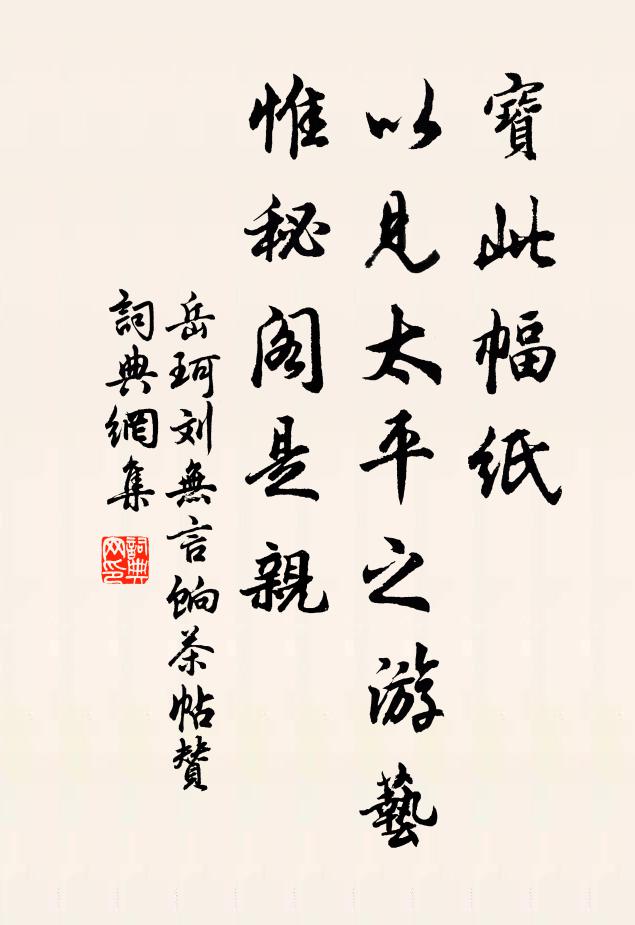 寶此幅紙
以見太平之游藝
惟秘阁是親
岳珂刘無言餉茶帖賛
詞典網集
詞典网印